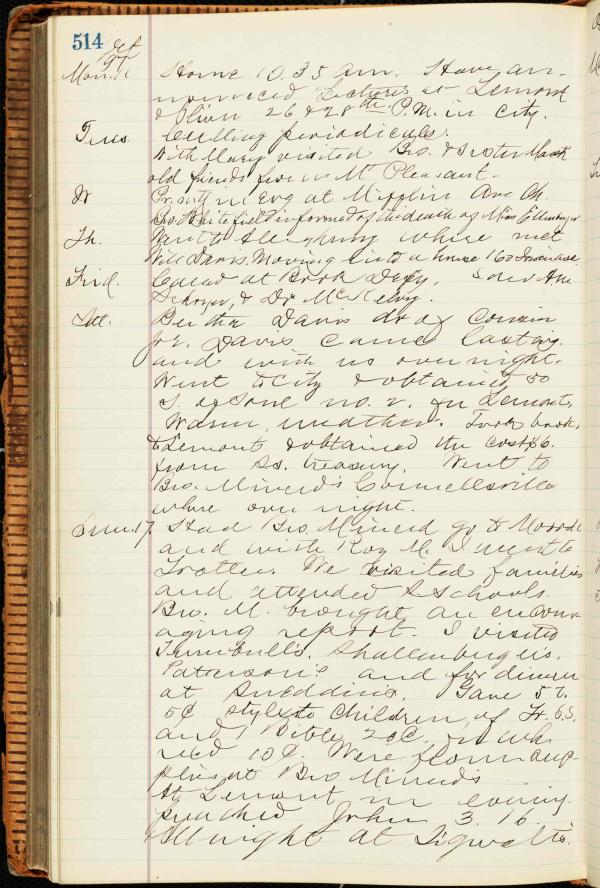 514
Mon. Home 10.35 am. Have an-
nounced Lectures at Lemont
& Oliver 26 & 28th P.M. in city.
Tues. Culling periodicals.
With Mary visited Bro. & Sister
old friends from Mt Pleasant.
W Pr. mtg in Evg at Mifflin Ave Ch.
Bro. Whitefield informed of the death of Miss
Th. Went to Allegheny where met
Will Davis. Moving into a house 160
Frid. Called at Book Depy. Solev Ave
& Dr McKelvy.
Sat. Bertha Davis dr of Cousin
Jos. Davis came last evg.
and with us over night.
Went to City & obtained 50
S. of Soul no. 2. for Lemont.
Warm weather. Took books
to Lemont & obtained the cost $6.
from Ss. treasury. Went to
Bro. Minerd's Connellsville
where over night.
Sun. 17. Had Bro. Minerd go to
and with Roy M. I went to
Trotter. We visited families
and attended 2 schools.
Bro. M. brought an encour-
aging report. I visited
Turnbull's. Shallenberger's.
Patterson's and for dinner
at Sneddins. Gave 5 t.
5¢ style to Children of Tr. S.S.
and 1 Bible 20¢. on wh.
recd 10¢. Were from sup-
plies at Bro Minerds
At Lemont in evening.
preached John 3.16.
All night at